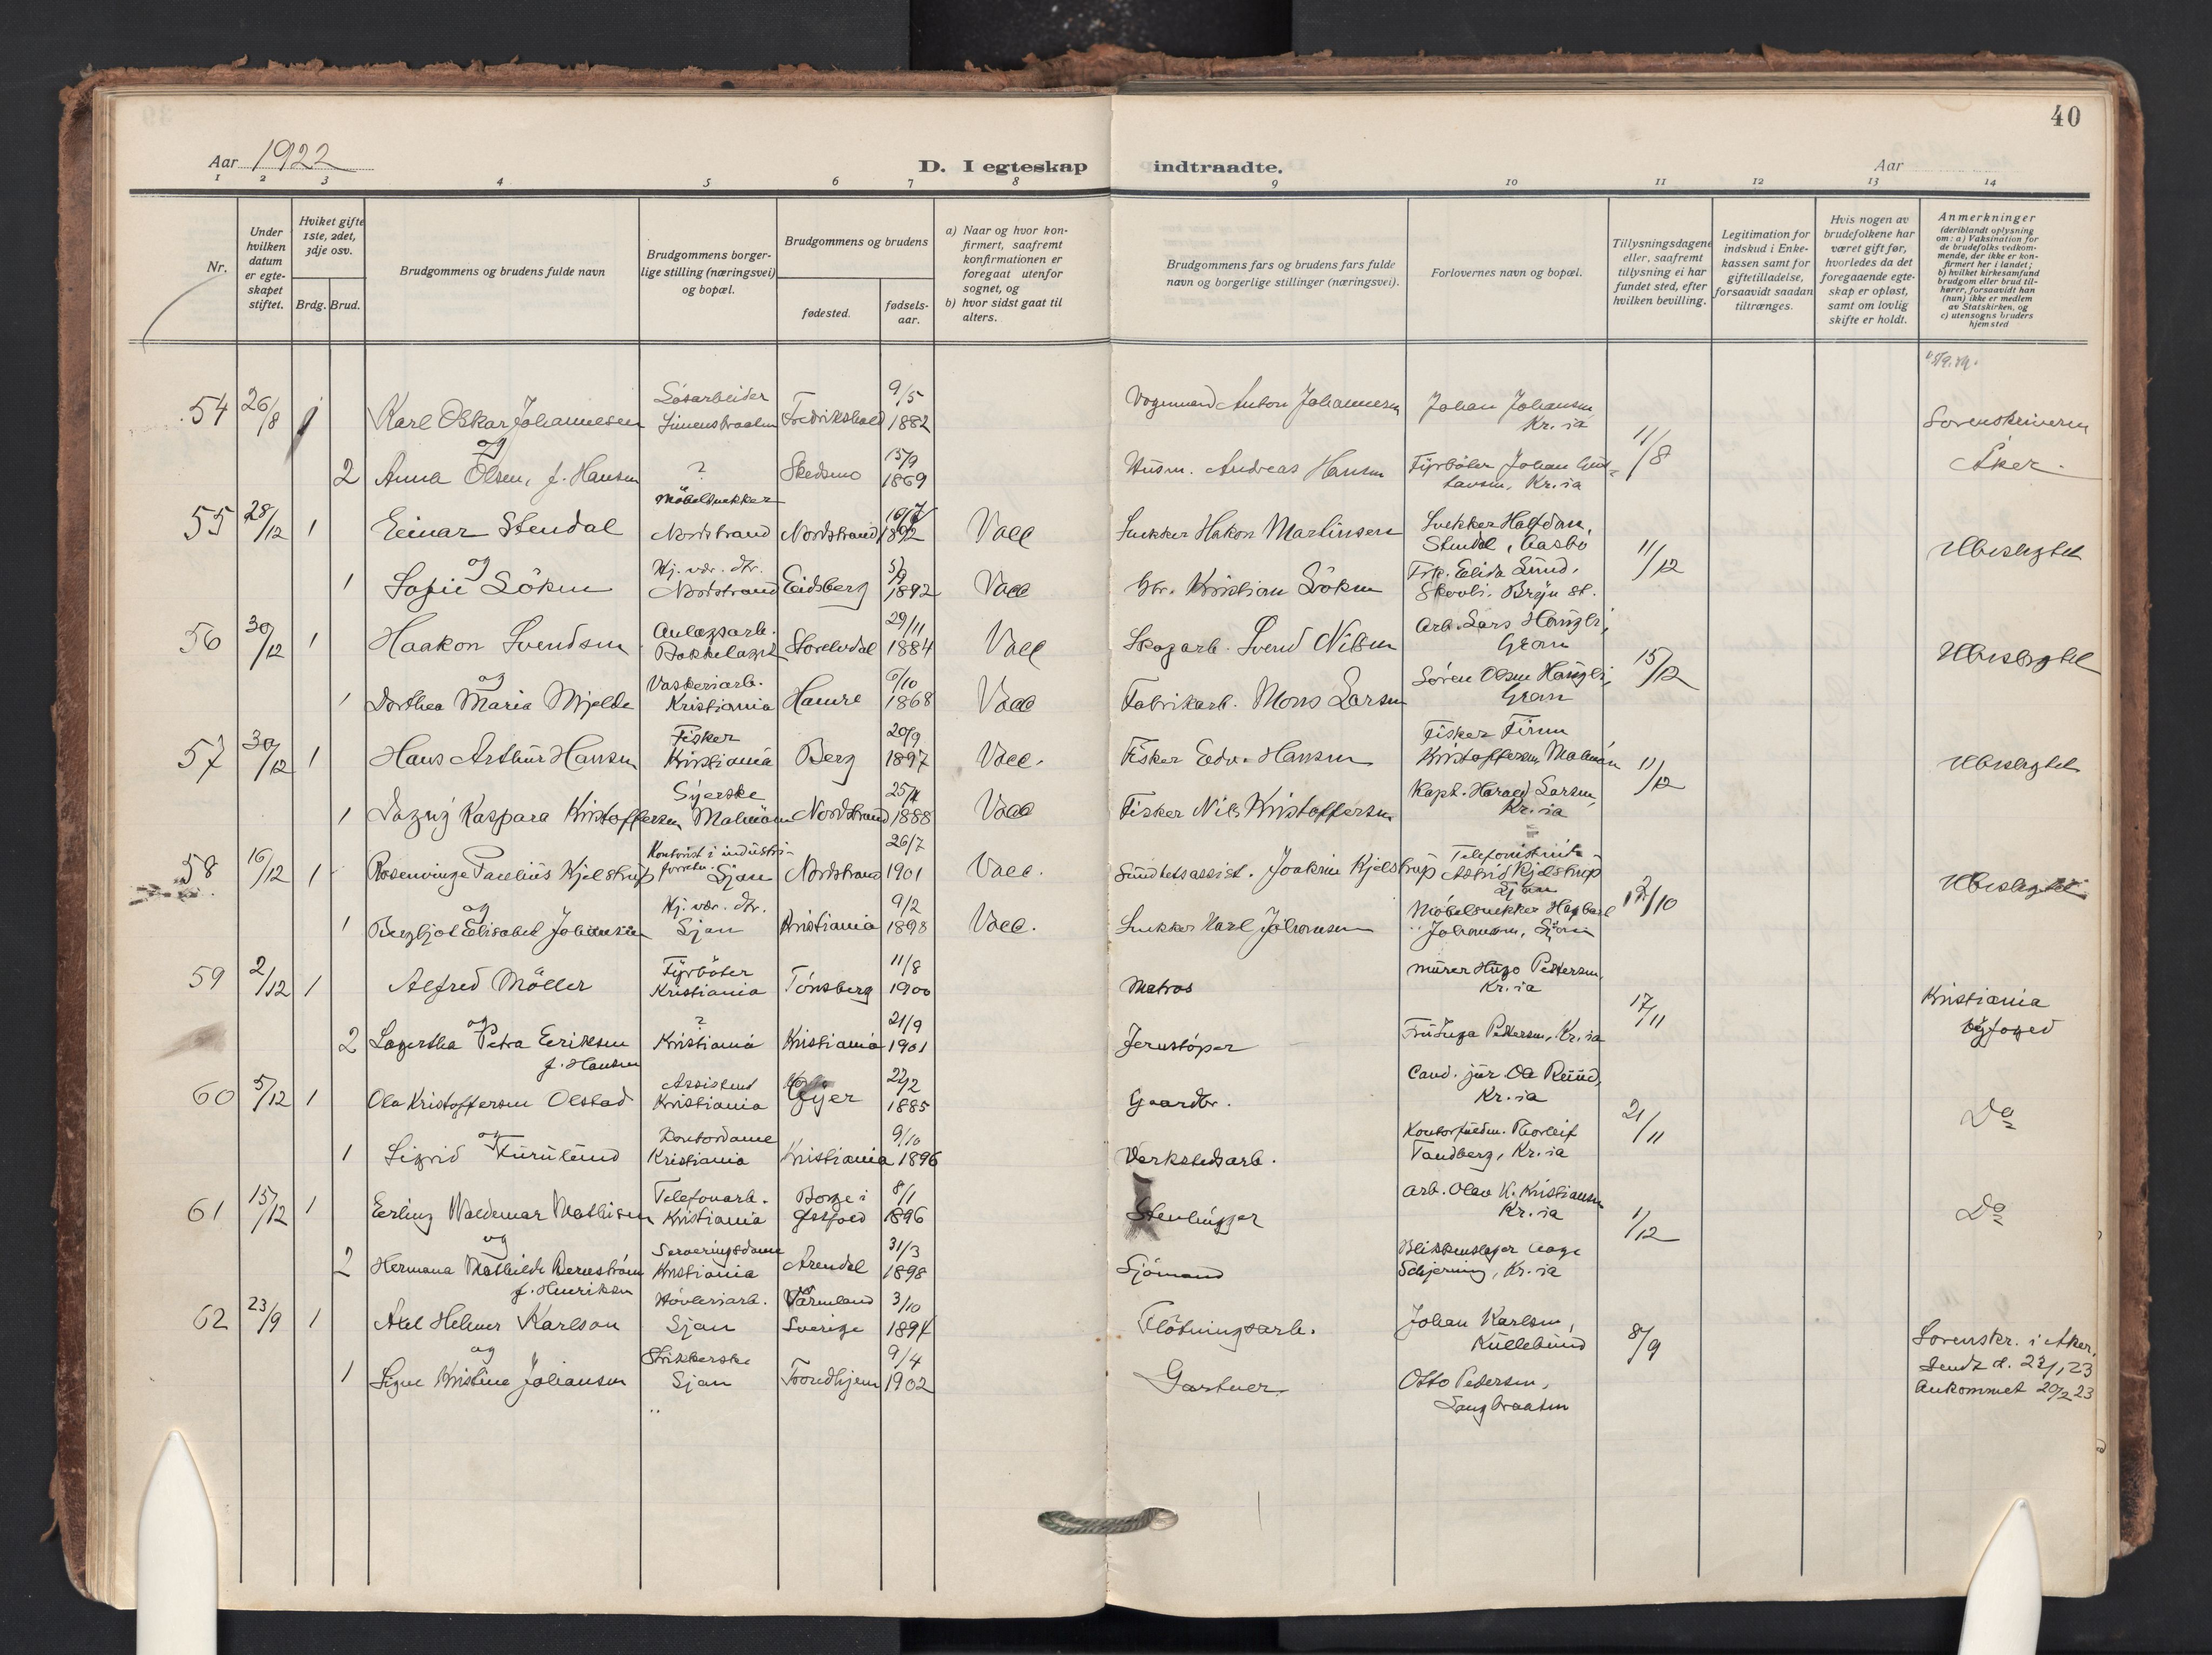 40
Aar 1922
D. I egteskap indtraadte.
Aar
1 2 3 4 5 6 7 8 9 10 11 12 13 14
Nr.
Under hvilken datum er egteskapet stiftet.
Hviket gifte 1ste, 2det, 3dje osv.
Brdg. Brud.
Brudgommens og brudens fulde navn
Brudgommens borgerlige stilling (næringsvei) og bopæl.
Brudgommens og brudens
fødested.
fødselsaar.
a) Naar og hvor konfirmert, saafremt konfirmationen er foregaat utenfor sognet, og
b) hvor sidst gaat til alters.
Brudgommens fars og brudens fars fulde navn og borgerlige stillinger (næringsvei).
Forlovernes navn og bopæl.
Tillysningsdagene eller, saafremt tillysning ei har fundet sted, efter hvilken bevilling.
Legitimation for indskud i Enkekassen samt for giftetilladelse, forsaavidt saadan tiltrænges.
Hvis nogen av brudefolkene har været gift før, hvorledes da det foregaaende egteskap er opløst, samt om lovlig skifte er holdt.
Anmerkninger (deriblandt oplysning om: a) Vaksination for de brudefolks vedkommende, der ikke er konfirmert her i landet; b) hvilket kirkesamfund brudgom eller brud tilhører, forsaavidt han (hun) ikke er medlem av Statskirken, og c) utensogns bruders hjemsted
54 26/8 1 Karl Oskar Johannesen Løsarbeider Fredrikshald 9/5 1882 Anton Johannesen Johan Johansen Kr.ia 11/8 Sorenskriveren Aker.
og
2 Anna Olsen, f. Hansen ? Skedsmo 15/9 1869 Husm. Andreas Hansen Fyrbøter Johan Gustavsen, Kr.ia
55 28/12 1 Einar Stendal Møbelsnekker Nordstrand Nordstrand 16/7 1892 Vaal Snekker Hakon Martinsen Snekker Halfdan Stendal, Aasbo 11/12 Ubeslegtet
og
1 Sofie Söken Hj. vær. dtr. Nordstrand Eidsberg 5/9 1892 Vaal Gbr. Kristian Söken Frk. Elida Lund, Skovli, Bryn st.
56 30/12 1 Haakon Svendsen Anlægsarb. Bækkelaget Storelvdal 29/11 1884 Vaal Skogarb. Svend Nilsen Arb. Lars Haugli, Gran 15/12 Ubeslegtet
og
1 Dorthea Maria Mjelde Vaskeriarb. Kristiania Hamre 6/10 1868 Vaal Fabrikarb. Mons Larsen Søren Olsen Haugli, Gran
57 30/12 1 Hans Arthur Hansen Fisker Kristiania Berg 20/9 1897 Vaal. Fisker Edv. Hansen Fisker Finn Kristoffersen Malmøen 11/12 Ubeslegtet
1 Dagny Kaspara Kristoffersen Syerske Malmøen Nordstrand 25/4 1888 Vaal Fisker Nils Kristoffersen Kapt. Harald Larsen, Kr.ia
58 16/12 1 Rosenvinge Paulius Kjelstrup Kontorist i industriforretn. Ljan Nordstrand 26/7 1901 Vaal. Joakim Kjelstrup Telefonistinde Astrid Kjelstrup Ljan 12/10 Ubeslegtet
og
1 Bergljot Elisabet Johansen Hj. vær. dtr. Ljan Kristiania 9/2 1898 Vaal. Snekker Karl Johansen Møbelsnekker Hagbart Johansen, Ljan
59 2/12 1 Alfred Möller Fyrbøter Kristiania Tønsberg 11/8 1900 Matros Murer Hugo Pettersen, Kr.ia 17/11 Kristiania byfoged
og
2 Lagertha Petra Eriksen f. Hansen ? Kristiania Kristiania 21/9 1901 Jernstøper Fru Inga Pettersen, Kr.ia
60 5/12 1 Ola Kristoffersen Olstad Assistent Kristiania Øyer 22/2 1885 Gaardbr. Cand. jur. Ola Ruud, Kr.ia 21/11 Do
og
1 Sigrid Furulund Kontordame Kristiania Kristiania 9/10 1896 Verkstedsarb. Kontorfuldm. Thorleif Tandberg, Kr.ia
61 15/12 1 Erling Waldemar Mathisen Telefonarb. Kristiania Borge i Østfold 8/1 1896 Stenhugger Arb. Olav K. Kristiansen Kr.ia 1/12 Do
og
2 Hermana Mathilde Bernstrøm f. Henriksen Serveringsdame Kristiania Arendal 31/3 1898 Sjömand Blikkenslager Aage Schjerning, Kr.ia
62 23/9 1 Axel Helmer Karlson Høvleriarb. Ljan Värmland Sverige 3/10 1894 Fløtningsarb. Johan Karlsen, Kullebund 8/9 Sorenskr. i Aker. Sendt d. 22/1 23 Ankommet 20/2 23
og
1 Signe Kristine Johansen Strikkerske Ljan Trondhjem 9/4 1902 Gartner. Otto Pedersen, Langbraaten